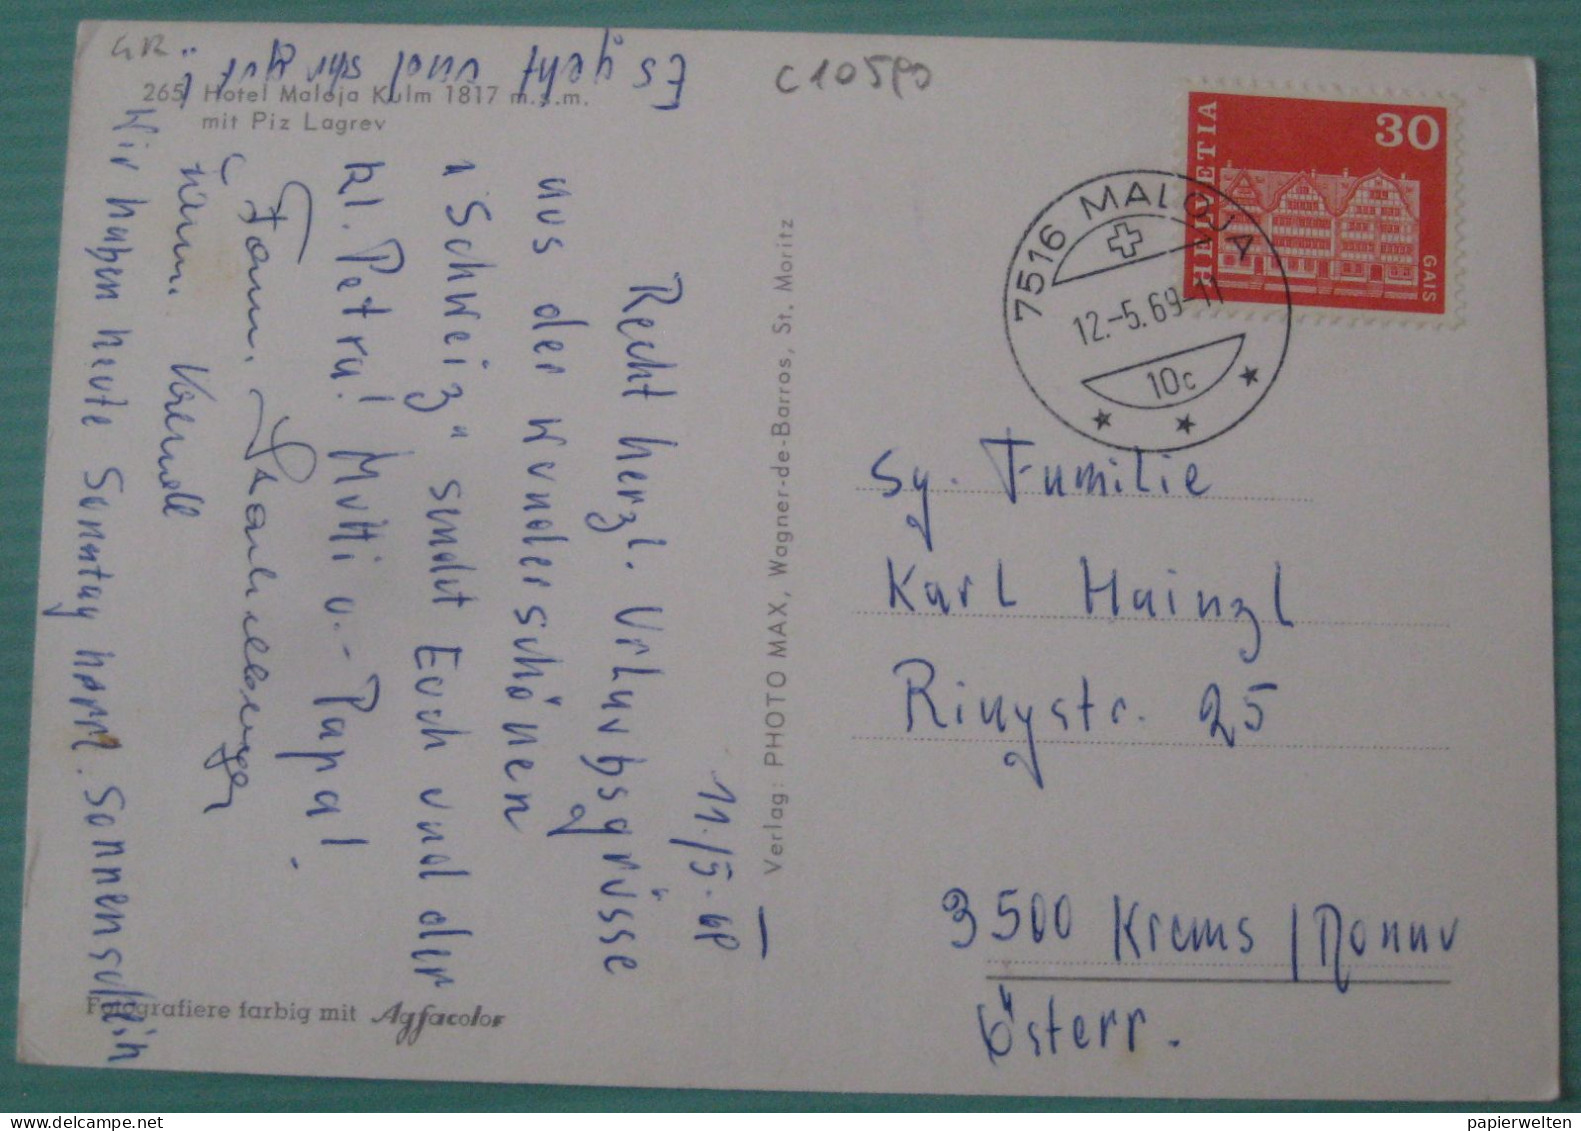 GR
265 Hotel Maloja Kulm 1817 m.ü.m.
mit Piz Lagrev
C105P0
HELVETIA
30
GAIS
7516 MALOJA
12.-5.69-11
10c
11./5.69
Recht herzl. Urlaubsgrüsse
aus der wunderschönen
"Schweiz" sendet Euch und der
kl. Petra! Mutti u. Papa!
Fam.
Wir haben heute Sonntag herrl. Sonnenschein
Es geht und sehr gut!
Verlag: PHOTO MAX, Wagner-de-Barros, St. Moritz
Fotografiere farbig mit Agfacolor
Sg. Familie
Karl Hainzl
Ringstr. 25
3500 Krems / Donau
Österr.
papierwelten